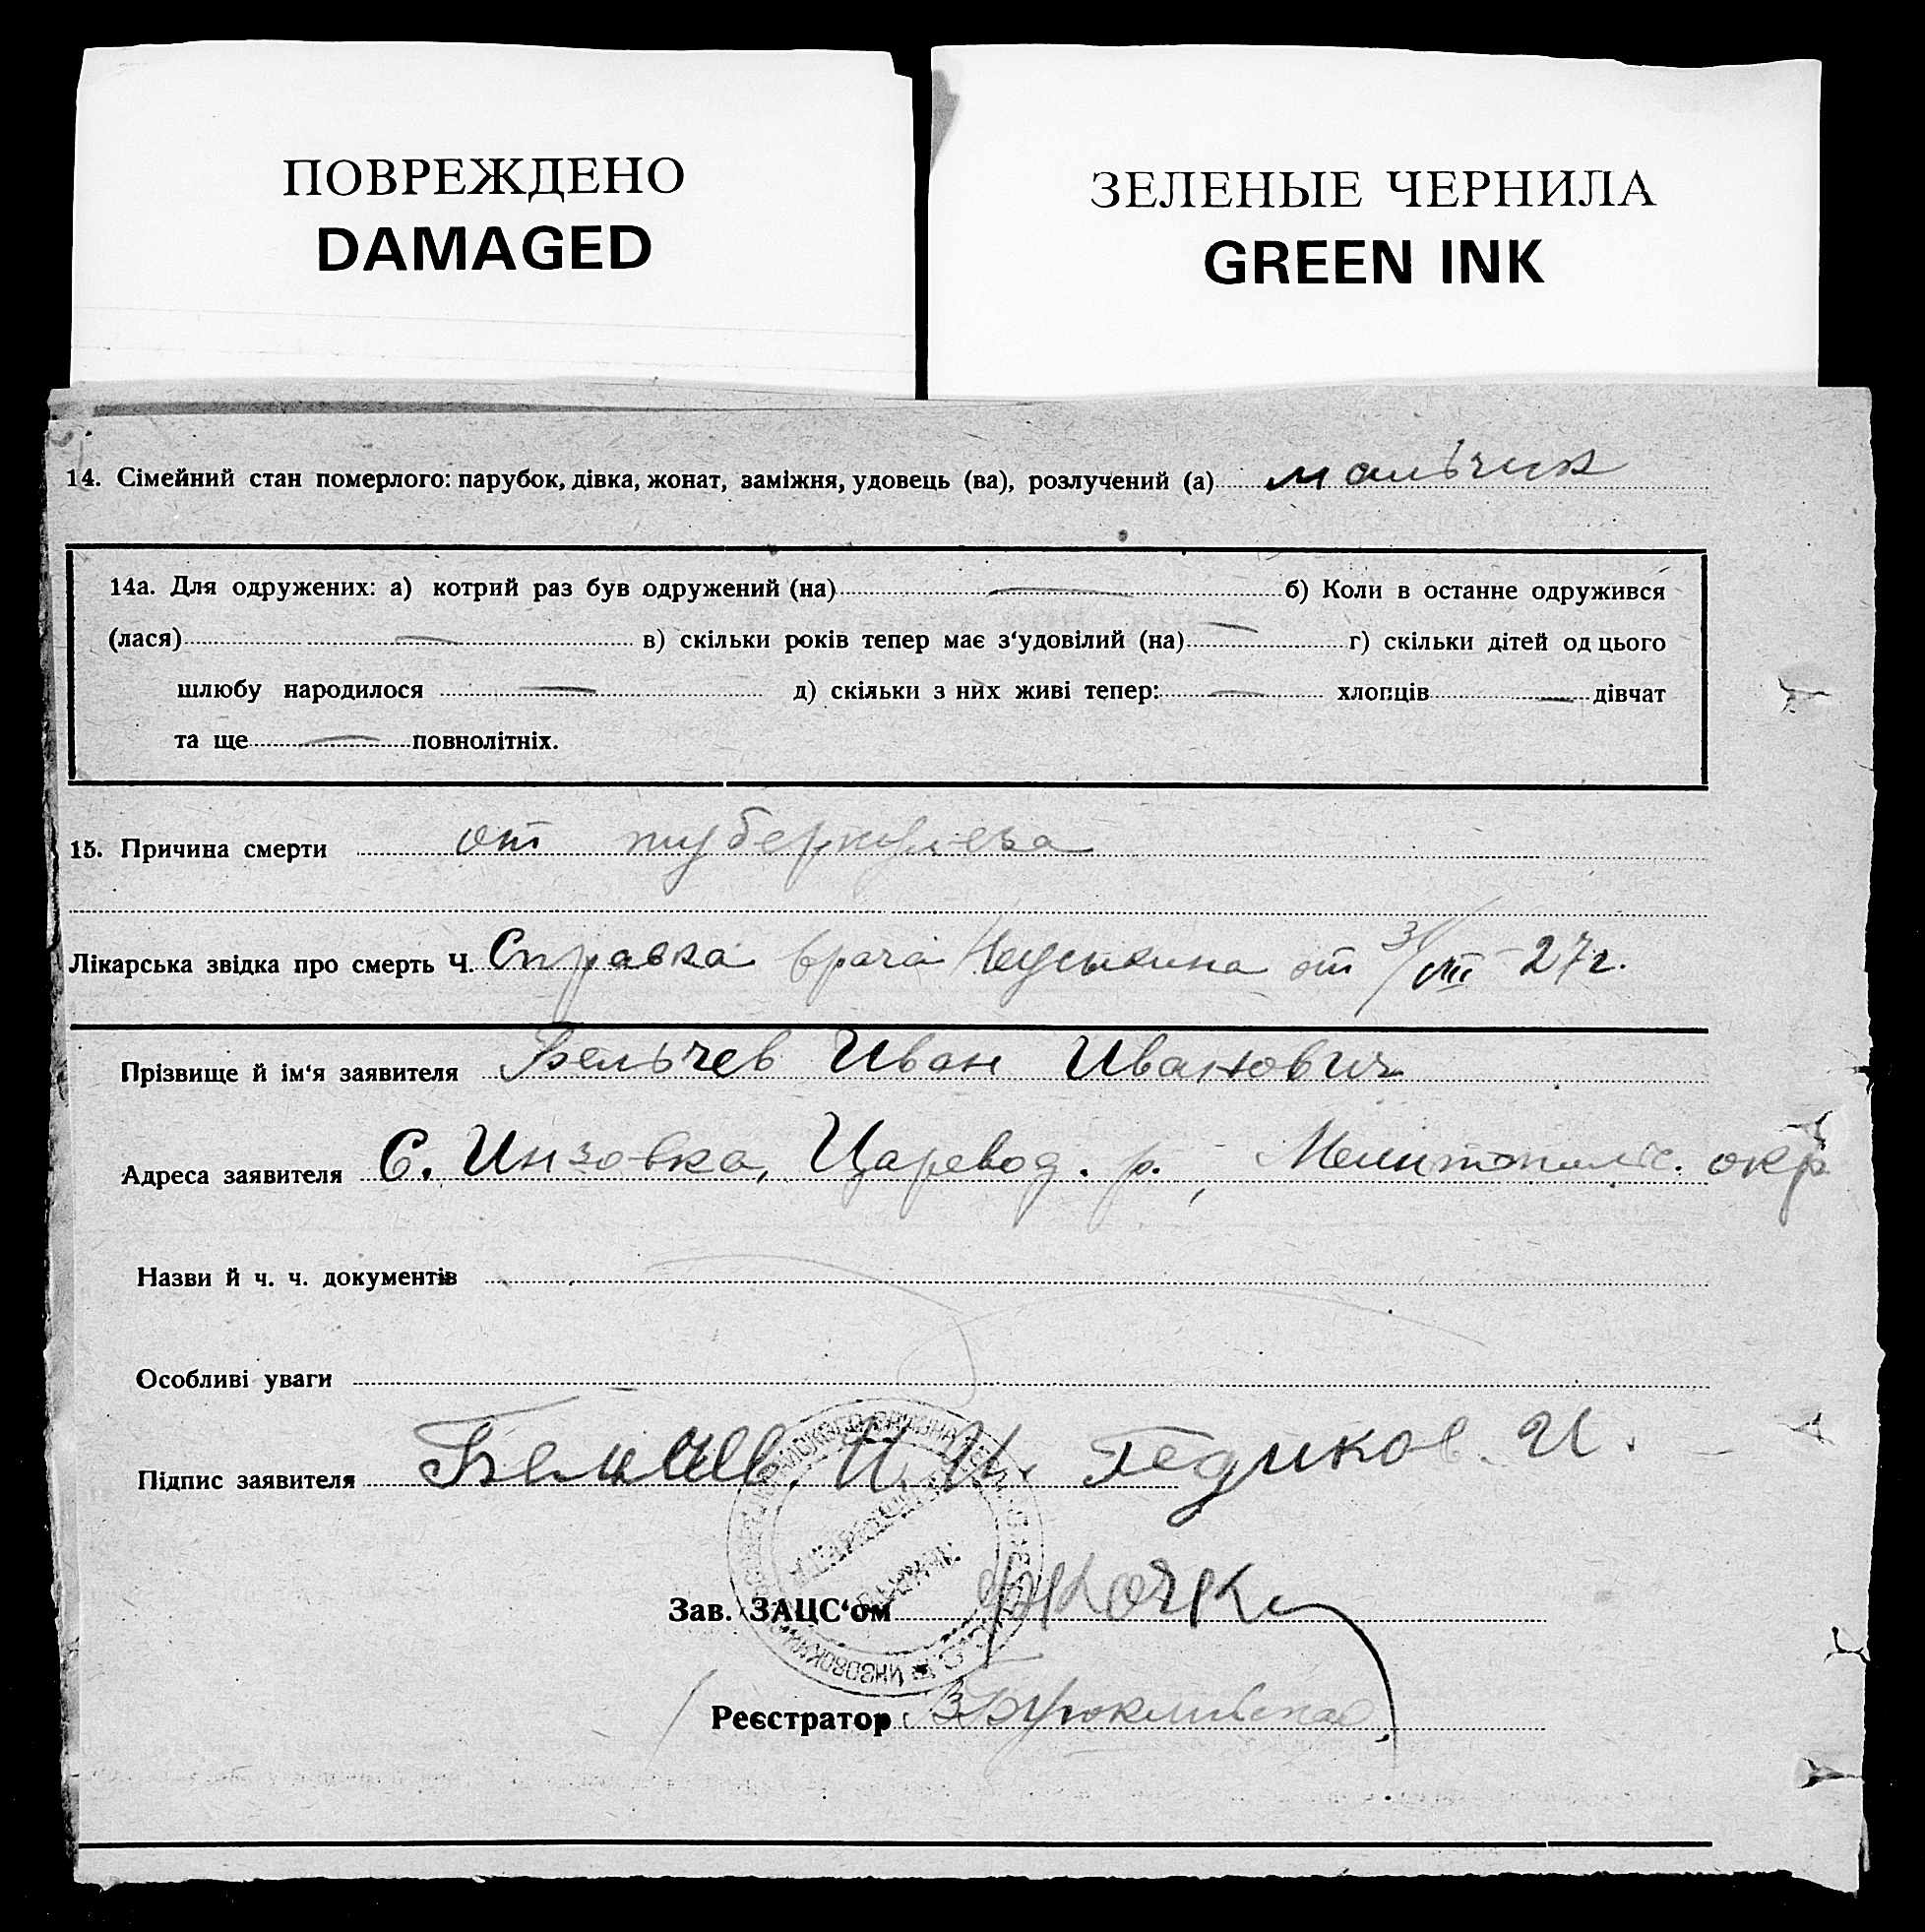 ПОВРЕЖДЕНО
DAMAGED
ЗЕЛЕНЫЕ ЧЕРНИЛА
GREEN INK
14. Сімейний стан померлого: парубок, дівка, жонат, заміжня, удовець (ва), розлучений (а) мальчик
14а. Для одружених: а) котрий раз був одружений (на) — б) Коли в останне одружився
(лася) — в) скільки років тепер має з‘удовілий (на) — г) скільки дітей од цього
шлюбу народилося — д) скільки з них живі тепер: — хлопців — дівчат
та ще — повнолітніх.
15. Причина смерти от туберкулеза
Лікарська звідка про смерть Ч. Справка врача от 31/VIII-27г.
Прізвище й ім‘я заявителя Бельчев Иван Иванович
Адреса заявителя С. Инзовка, Царевод. р., Мелитопольс. окр
Назви й ч. ч. документів
Особливі уваги
Підпис заявителя Бельчев. И. И. Гедиков. И.
Зав. ЗАЦС‘ом
Реєстратор